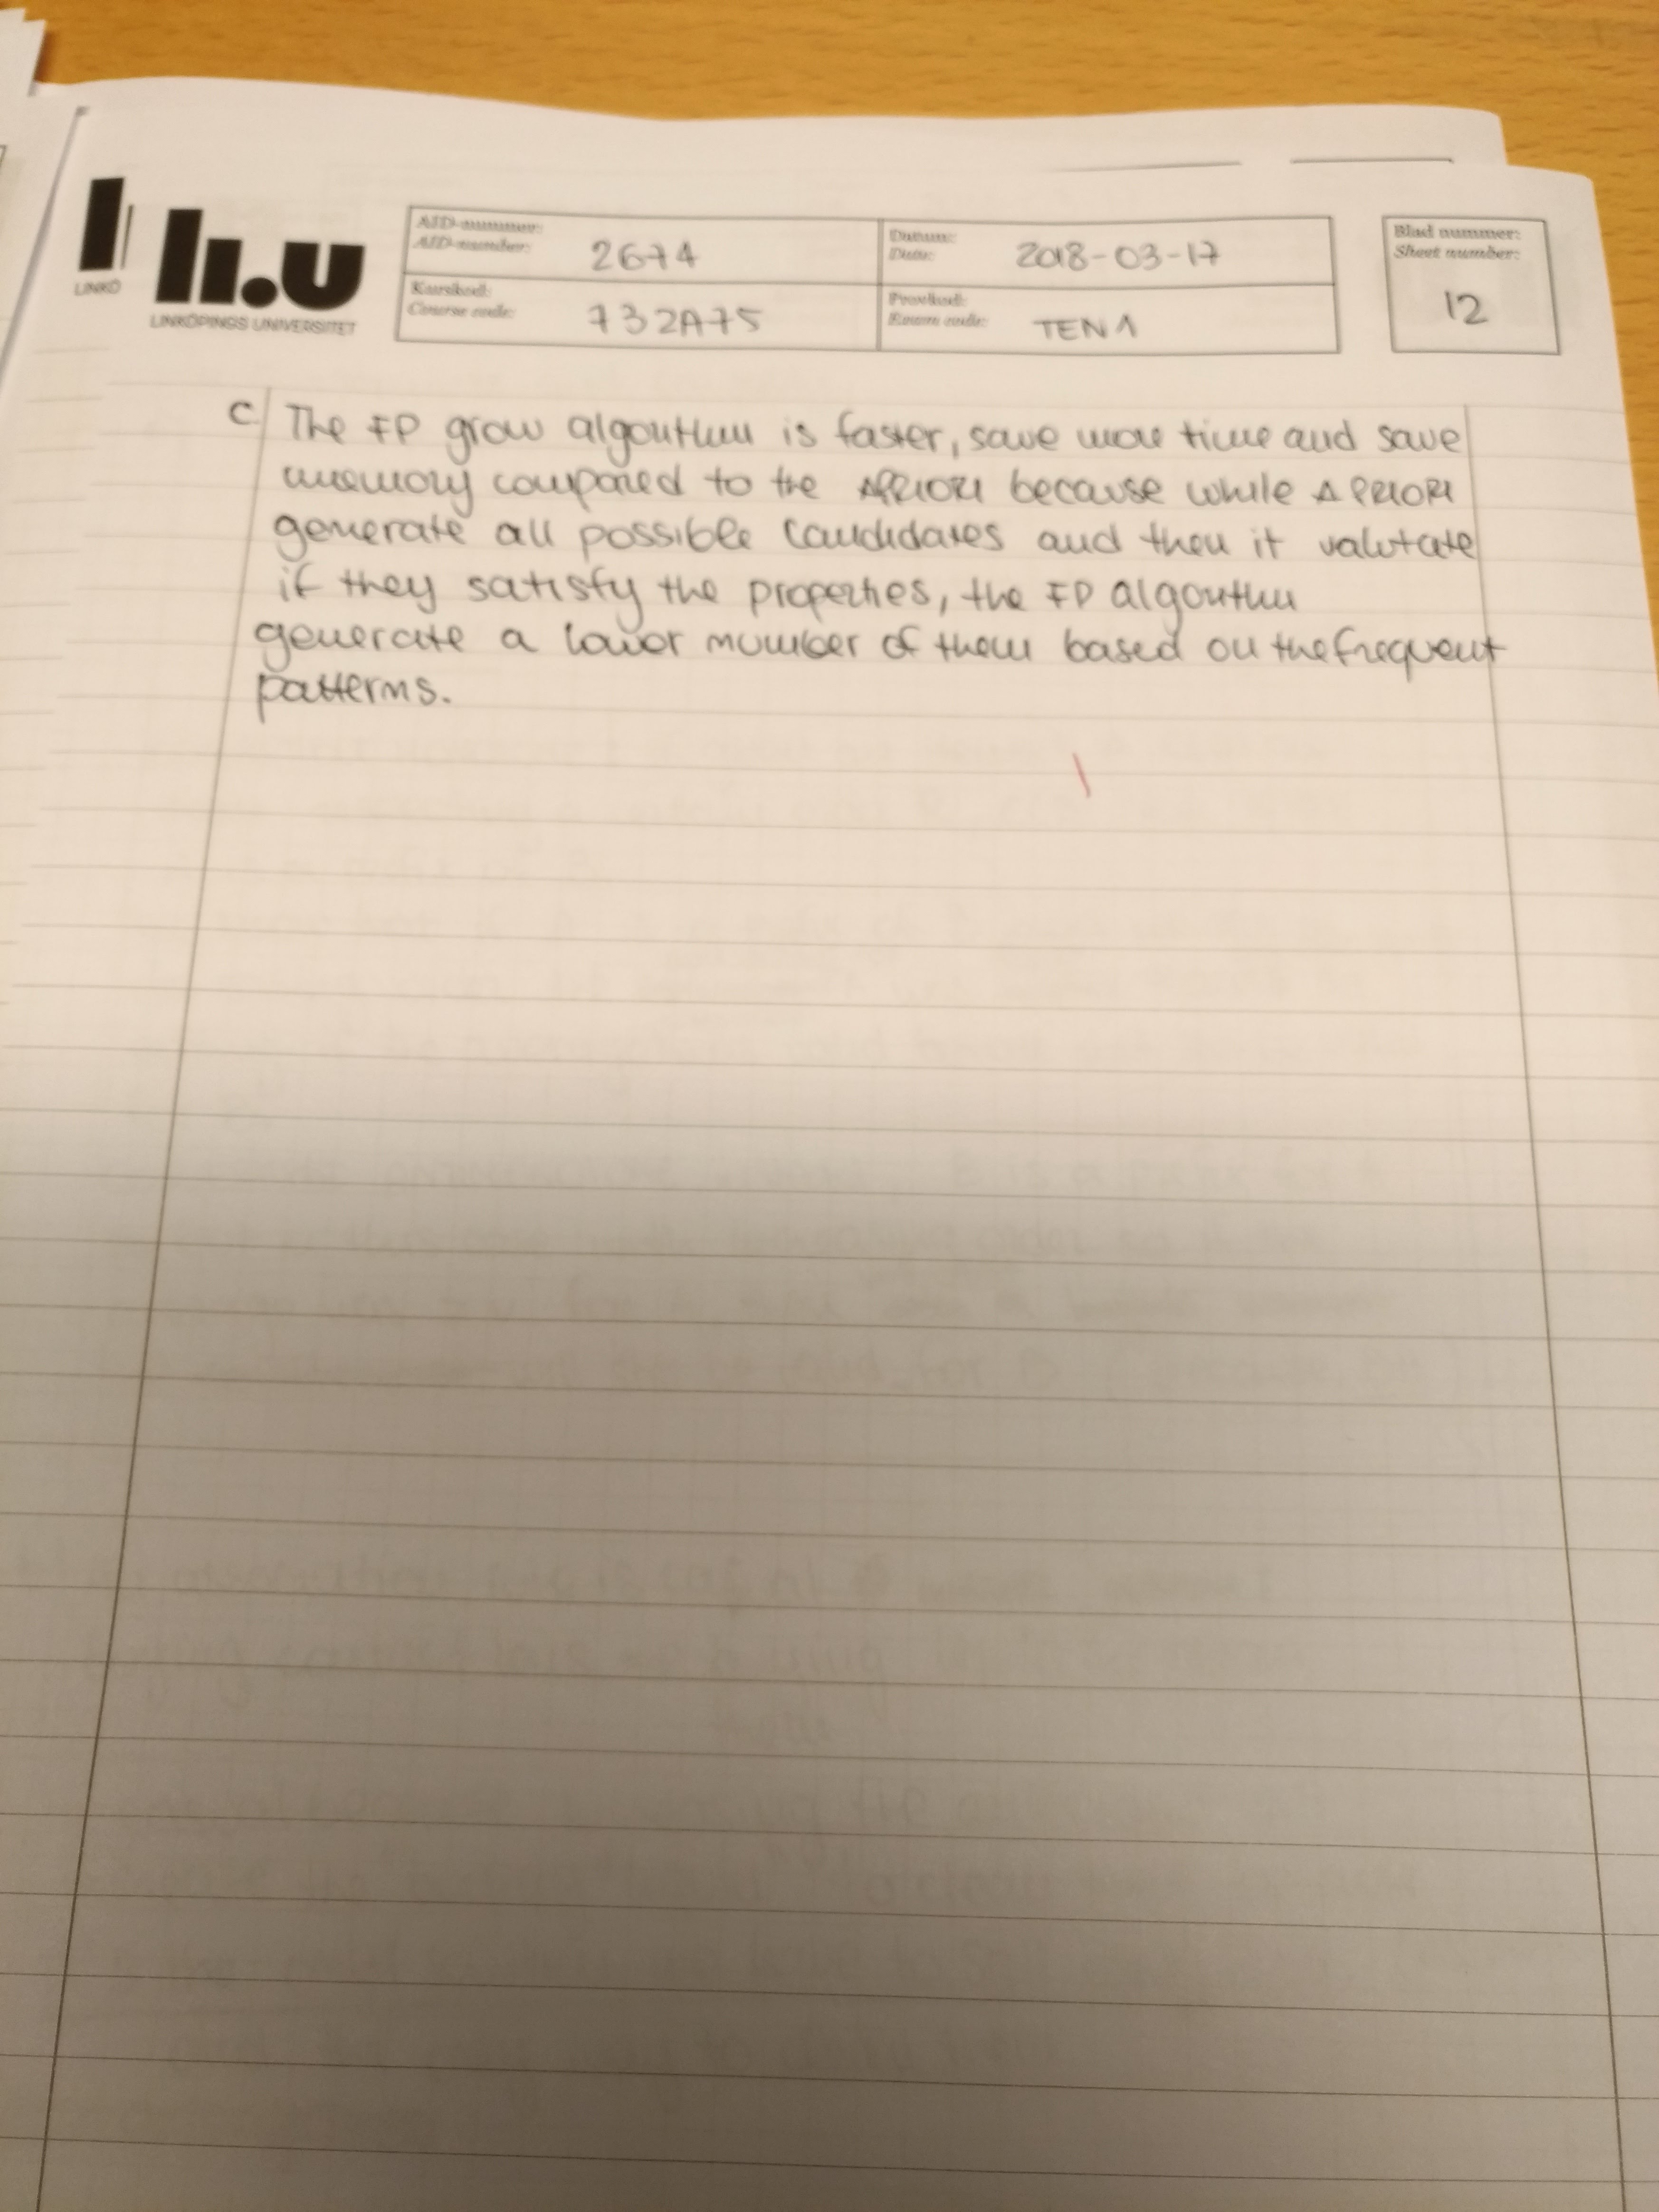 LINKÖ
li.u
LINKÖPINGS UNIVERSITET
AID-nummer:
AID-number:
2674
Datum:
Date:
2018-03-17
Blad nummer:
Sheet number:
12
Kurskod:
Course code:
732A75
Provkod:
Exam code:
TEN1
c The FP grow algorithm is faster, save more time and save
memory compared to the APRIORI because while APRIORI
generate all possible candidates and then it valutate
if they satisfy the properties, the FP algorithm
generate a lower number of them based on the frequent
patterns.